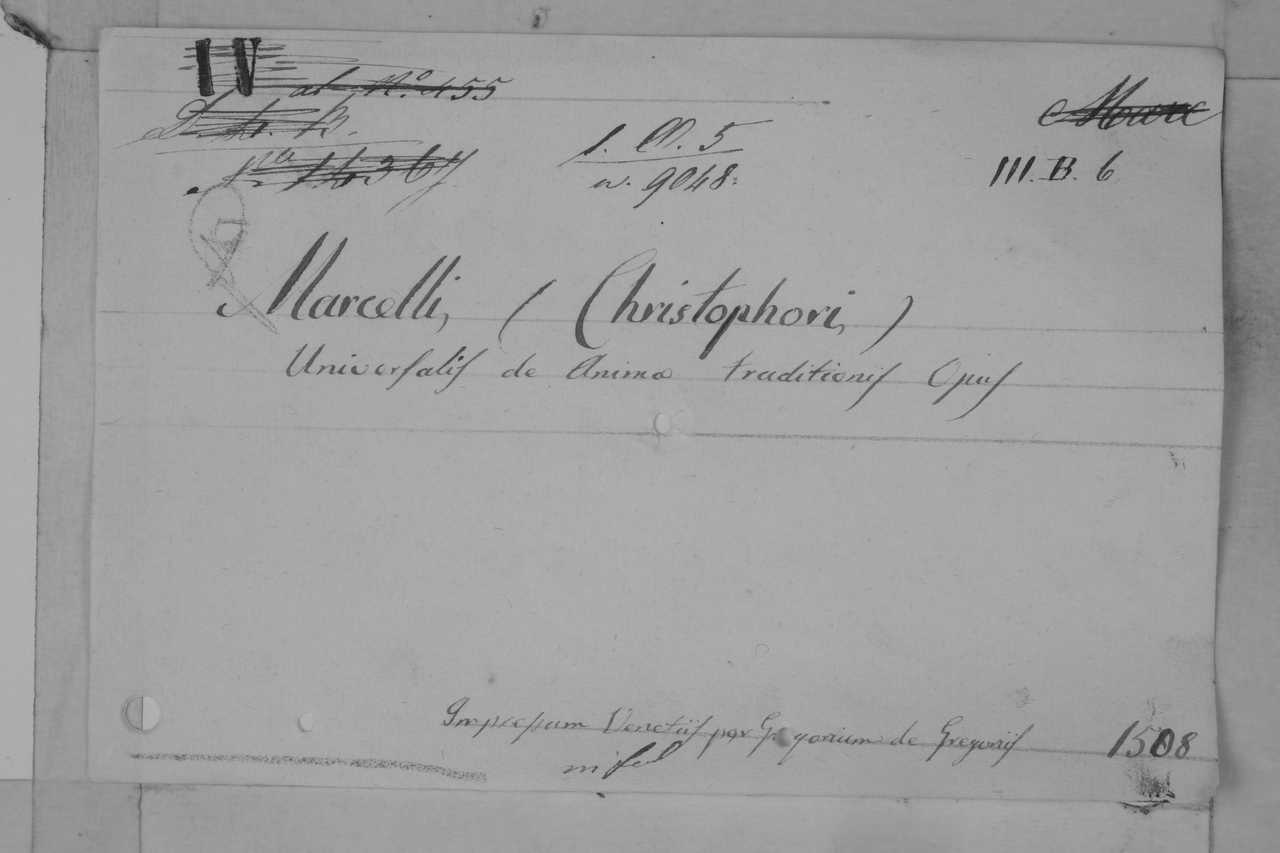 IV ab N.º 455
N.º 14367
1. O. 5
w. 9048.
III. B. 6
Marcelli, (Christophori,)
Univerſaliſ de Anima traditioniſ Opuſ
Impreſsum Venetiiſ per Gregorium de Gregoriiſ 1508
in fol